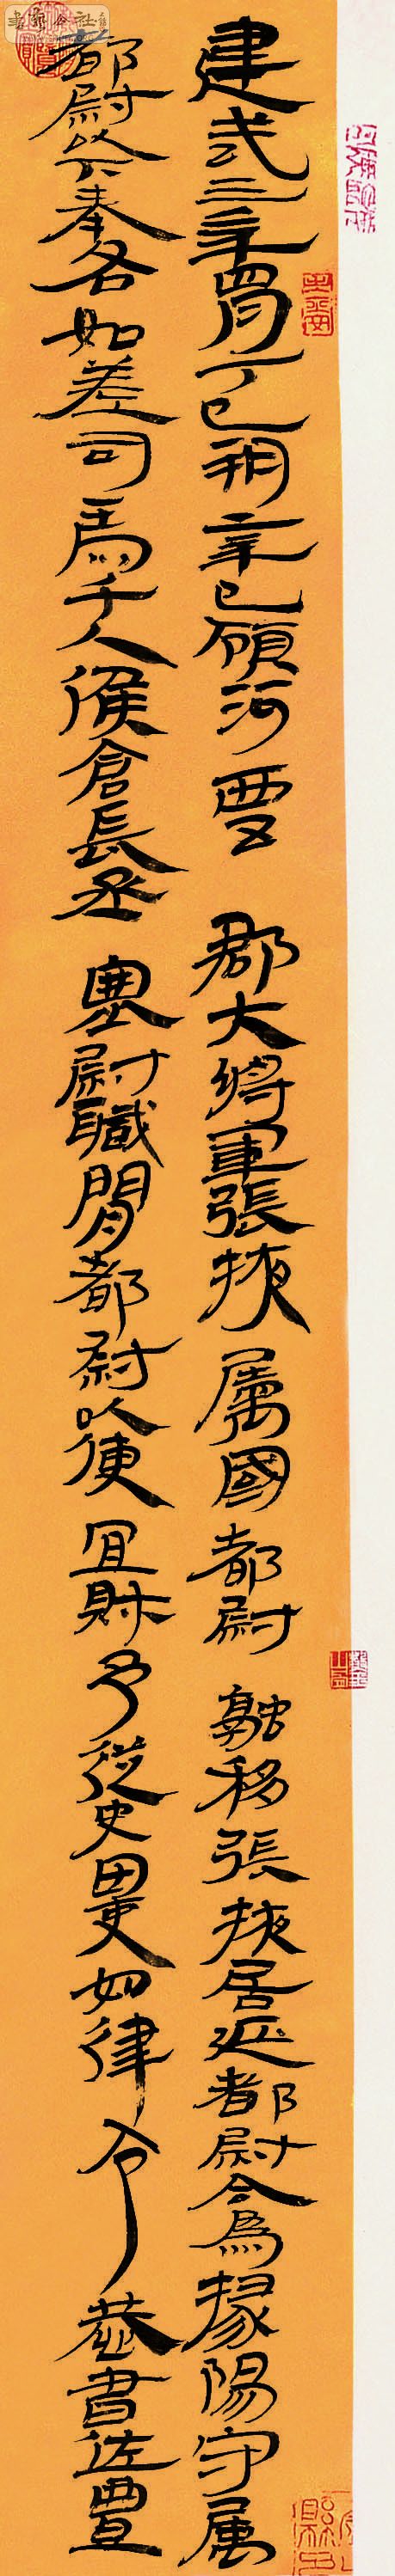 建武三年四月丁巳朔辛巳領河西五郡大將軍張掖属國都尉融移張掖居延都尉今為掾陽守属
都尉以下奉各如差司馬千人候倉長丞塞尉職閒都尉以便宜財予從史田吏如律令恭書佐豊